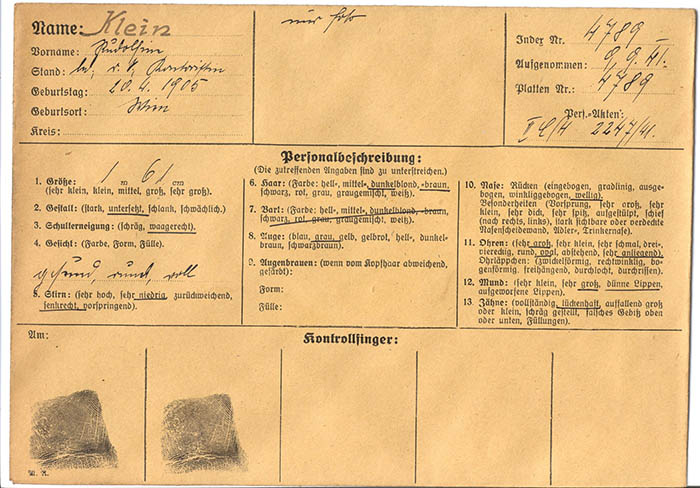 Name: Klein
Vorname: Rudolfine
Stand:
Geburtstag: 20.4.1905
Geburtsort: Wien
Kreis:
nur Foto
Index Nr. 4789
Aufgenommen: 9.9.41.
Platten Nr.: 4789
Pers.-Akten:
2247/41.
Personalbeschreibung:
(Die zutreffenden Angaben sind zu unterstreichen.)
1. Größe: 1 m 61 cm
(sehr klein, klein, mittel, groß, sehr groß).
2. Gestalt: (stark, untersetzt, schlank, schwächlich.)
3. Schulterneigung: (schräg, waagerecht.)
4. Gesicht: (Farbe, Form, Fülle).
gesund, rund, voll
5. Stirn: (sehr hoch, sehr niedrig, zurückweichend,
senkrecht, vorspringend).
6. Haar: (Farbe: hell-, mittel-, dunkelblond, -braun,
schwarz, rot, grau, graugemischt, weiß).
7. Bart: (Farbe: hell-, mittel-, dunkelblond, -braun,
schwarz, rot, grau, graugemischt, weiß).
8. Auge: (blau, grau, gelb, gelbrot, hell-, dunkel-
braun, schwarzbraun).
9. Augenbrauen: (wenn vom Kopfhaar abweichend,
gefärbt):
Form:
Fülle:
10. Nase: Rücken (eingebogen, gradlinig, ausge-
bogen, winkliggebogen, wellig).
Besonderheiten (Vorsprung, sehr groß, sehr
klein, sehr dick, sehr spitz, aufgestülpt, schief
(nach rechts, links), stark sichtbare oder verdeckte
Nasenscheidewand, Adler-, Trinkernase).
11. Ohren: (sehr groß, sehr klein, sehr schmal, drei-,
viereckig, rund, oval, abstehend, sehr anliegend).
Ohrläppchen: (zwickelförmig, rechtwinklig, bo-
genförmig, freihängend, durchlocht, durchrissen).
12. Mund: (sehr klein, sehr groß, dünne Lippen,
aufgeworfene Lippen).
13. Zähne: (vollständig, lückenhaft, auffallend groß
oder klein, schräg gestellt, falsches Gebiß oben
oder unten, Füllungen).
Am:
Kontrollfinger: